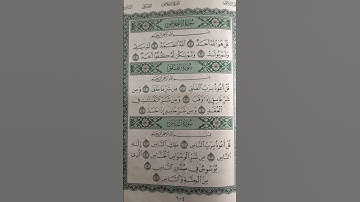 سُورَةُ الإِخْلَاصِ
بِسْمِ اللَّهِ الرَّحْمَٰنِ الرَّحِيمِ
قُلْ هُوَ اللَّهُ أَحَدٌ ۝ اللَّهُ الصَّمَدُ ۝ لَمْ يَلِدْ
وَلَمْ يُولَدْ ۝ وَلَمْ يَكُن لَّهُ كُفُوًا أَحَدٌ ۝
سُورَةُ الفَلَقِ
بِسْمِ اللَّهِ الرَّحْمَٰنِ الرَّحِيمِ
قُلْ أَعُوذُ بِرَبِّ الْفَلَقِ ۝ مِن شَرِّ مَا خَلَقَ ۝ وَمِن
شَرِّ غَاسِقٍ إِذَا وَقَبَ ۝ وَمِن شَرِّ النَّفَّاثَاتِ فِي
الْعُقَدِ ۝ وَمِن شَرِّ حَاسِدٍ إِذَا حَسَدَ ۝
سُورَةُ النَّاسِ
بِسْمِ اللَّهِ الرَّحْمَٰنِ الرَّحِيمِ
قُلْ أَعُوذُ بِرَبِّ النَّاسِ ۝ مَلِكِ النَّاسِ ۝ إِلَٰهِ
النَّاسِ ۝ مِن شَرِّ الْوَسْوَاسِ الْخَنَّاسِ ۝ الَّذِي
يُوَسْوِسُ فِي صُدُورِ النَّاسِ ۝
مِنَ الْجِنَّةِ وَالنَّاسِ ۝
٦٠٤